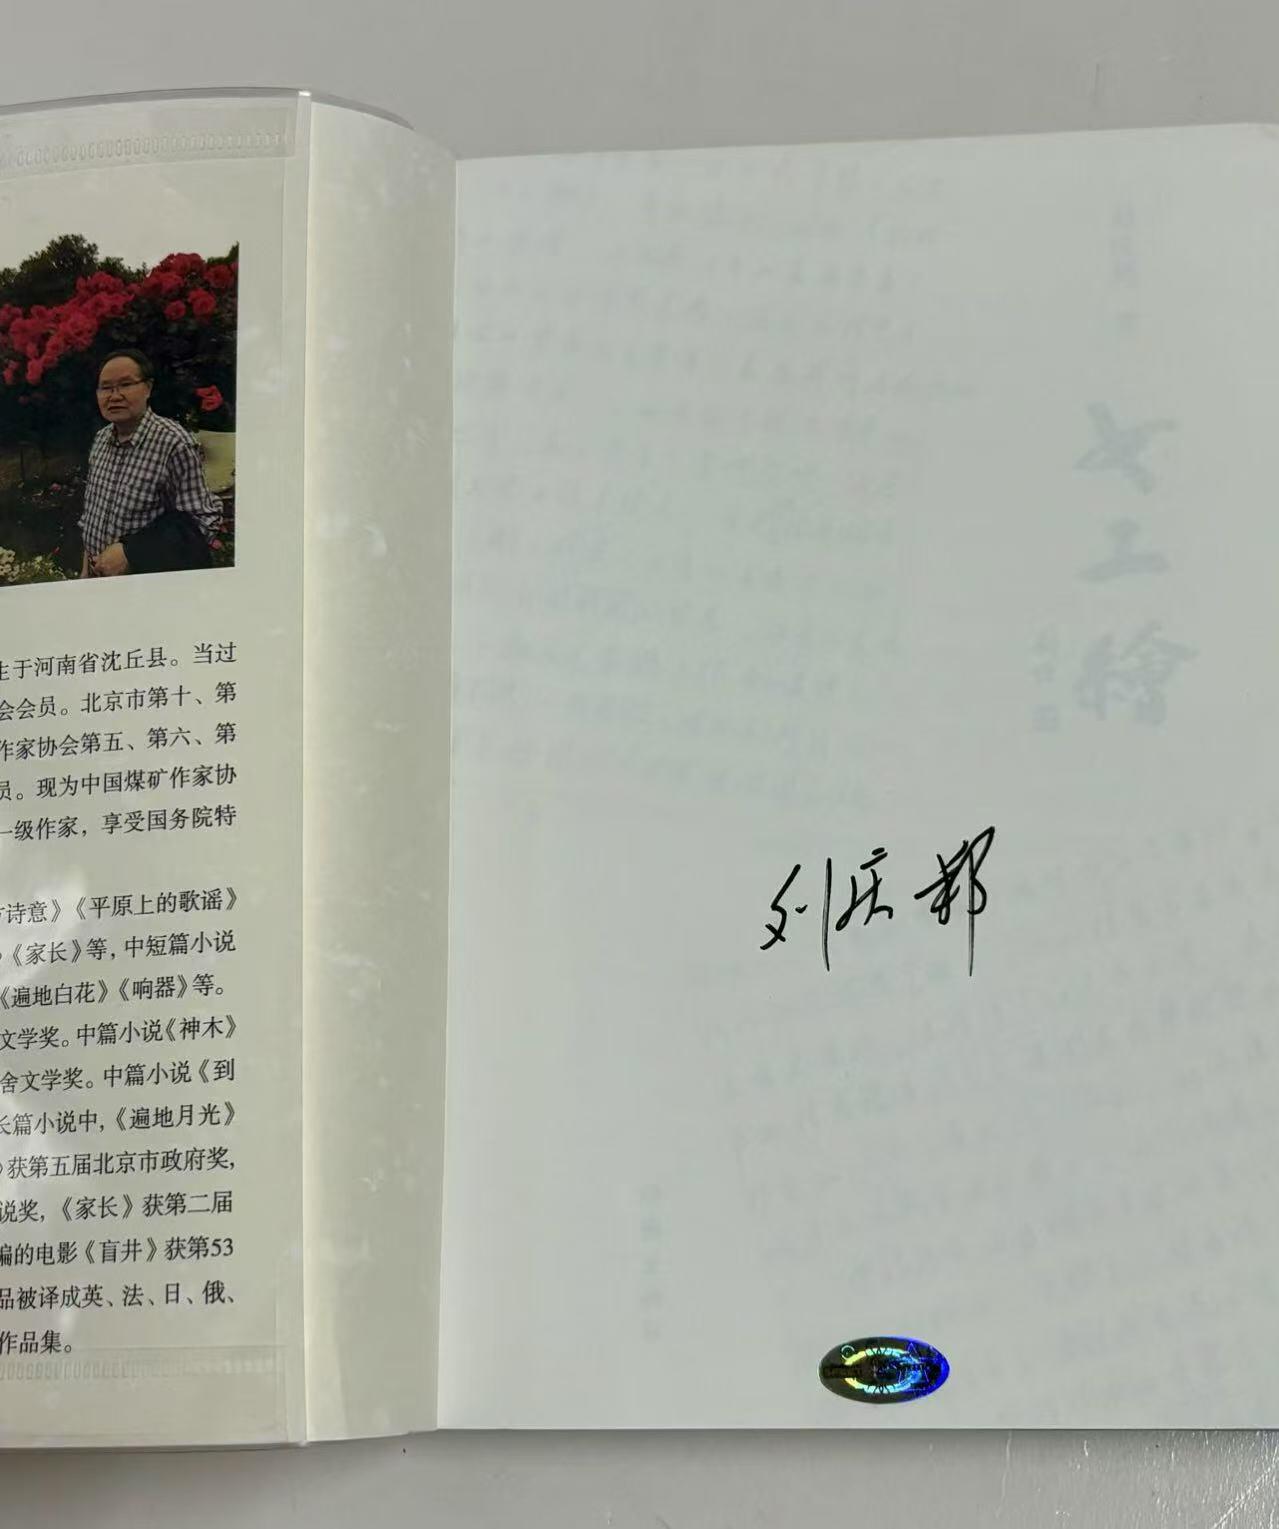 生于河南省沈丘县。当过
会会员。北京市第十、第
作家协会第五、第六、第
员。现为中国煤矿作家协
一级作家，享受国务院特
诗意》《平原上的歌谣》
》《家长》等，中短篇小说
《遍地白花》《响器》等。
文学奖。中篇小说《神木》
舍文学奖。中篇小说《到
长篇小说中，《遍地月光》
》获第五届北京市政府奖，
说奖，《家长》获第二届
编的电影《盲井》获第53
品被译成英、法、日、俄、
作品集。
刘庆邦
女工绘